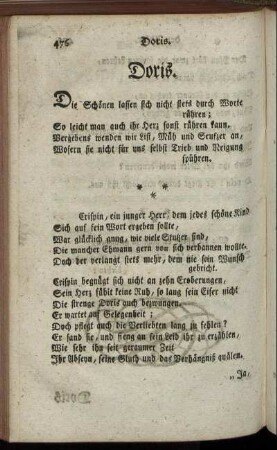 476 Doris.
Doris.
Die Schönen lassen sich nicht stets durch Worte
rühren;
So leicht man auch ihr Herz sonst rühren kann.
Vergebens wenden wir List, Müh und Seufzer an,
Wofern sie nicht für uns selbst Trieb und Neigung
spühren.
* * *
Crispin, ein junger Herr, dem jedes schöne Kind
Sich auf sein Wort ergeben sollte,
War glücklich gnug, wie viele Stutzer sind,
Die mancher Ehmann gern von sich verbannen wollte.
Doch der verlangt stets mehr, dem nie sein Wunsch
gebricht.
Crispin begnügt sich nicht an zehn Eroberungen,
Sein Herz fühlt keine Ruh, so lang sein Eifer nicht
Die strenge Doris auch bezwungen.
Er wartet auf Gelegenheit;
Doch pflegt auch die Verliebten lang zu fehlen?
Er fand sie, und fieng an sein Leid ihr zu erzählen,
Wie sehr ihn seit geraumer Zeit
Ihr Absehn, seine Gluth und das Verhängniß quälen.
„Ja,